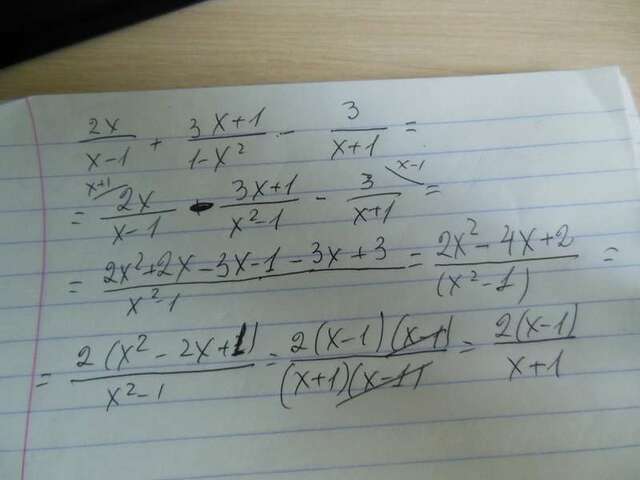 2x/(x-1) + (3x+1)/(1-x²) - 3/(x+1) =
= 2x/(x-1) ^(x+1) - (3x+1)/(x²-1) - 3/(x+1) ^(x-1) =
= (2x²+2x-3x-1-3x+3)/(x²-1) = (2x²-4x+2)/((x²-1)) =
= 2(x²-2x+1)/(x²-1) = 2(x-1)(x-1)/((x+1)(x-1)) = 2(x-1)/(x+1)